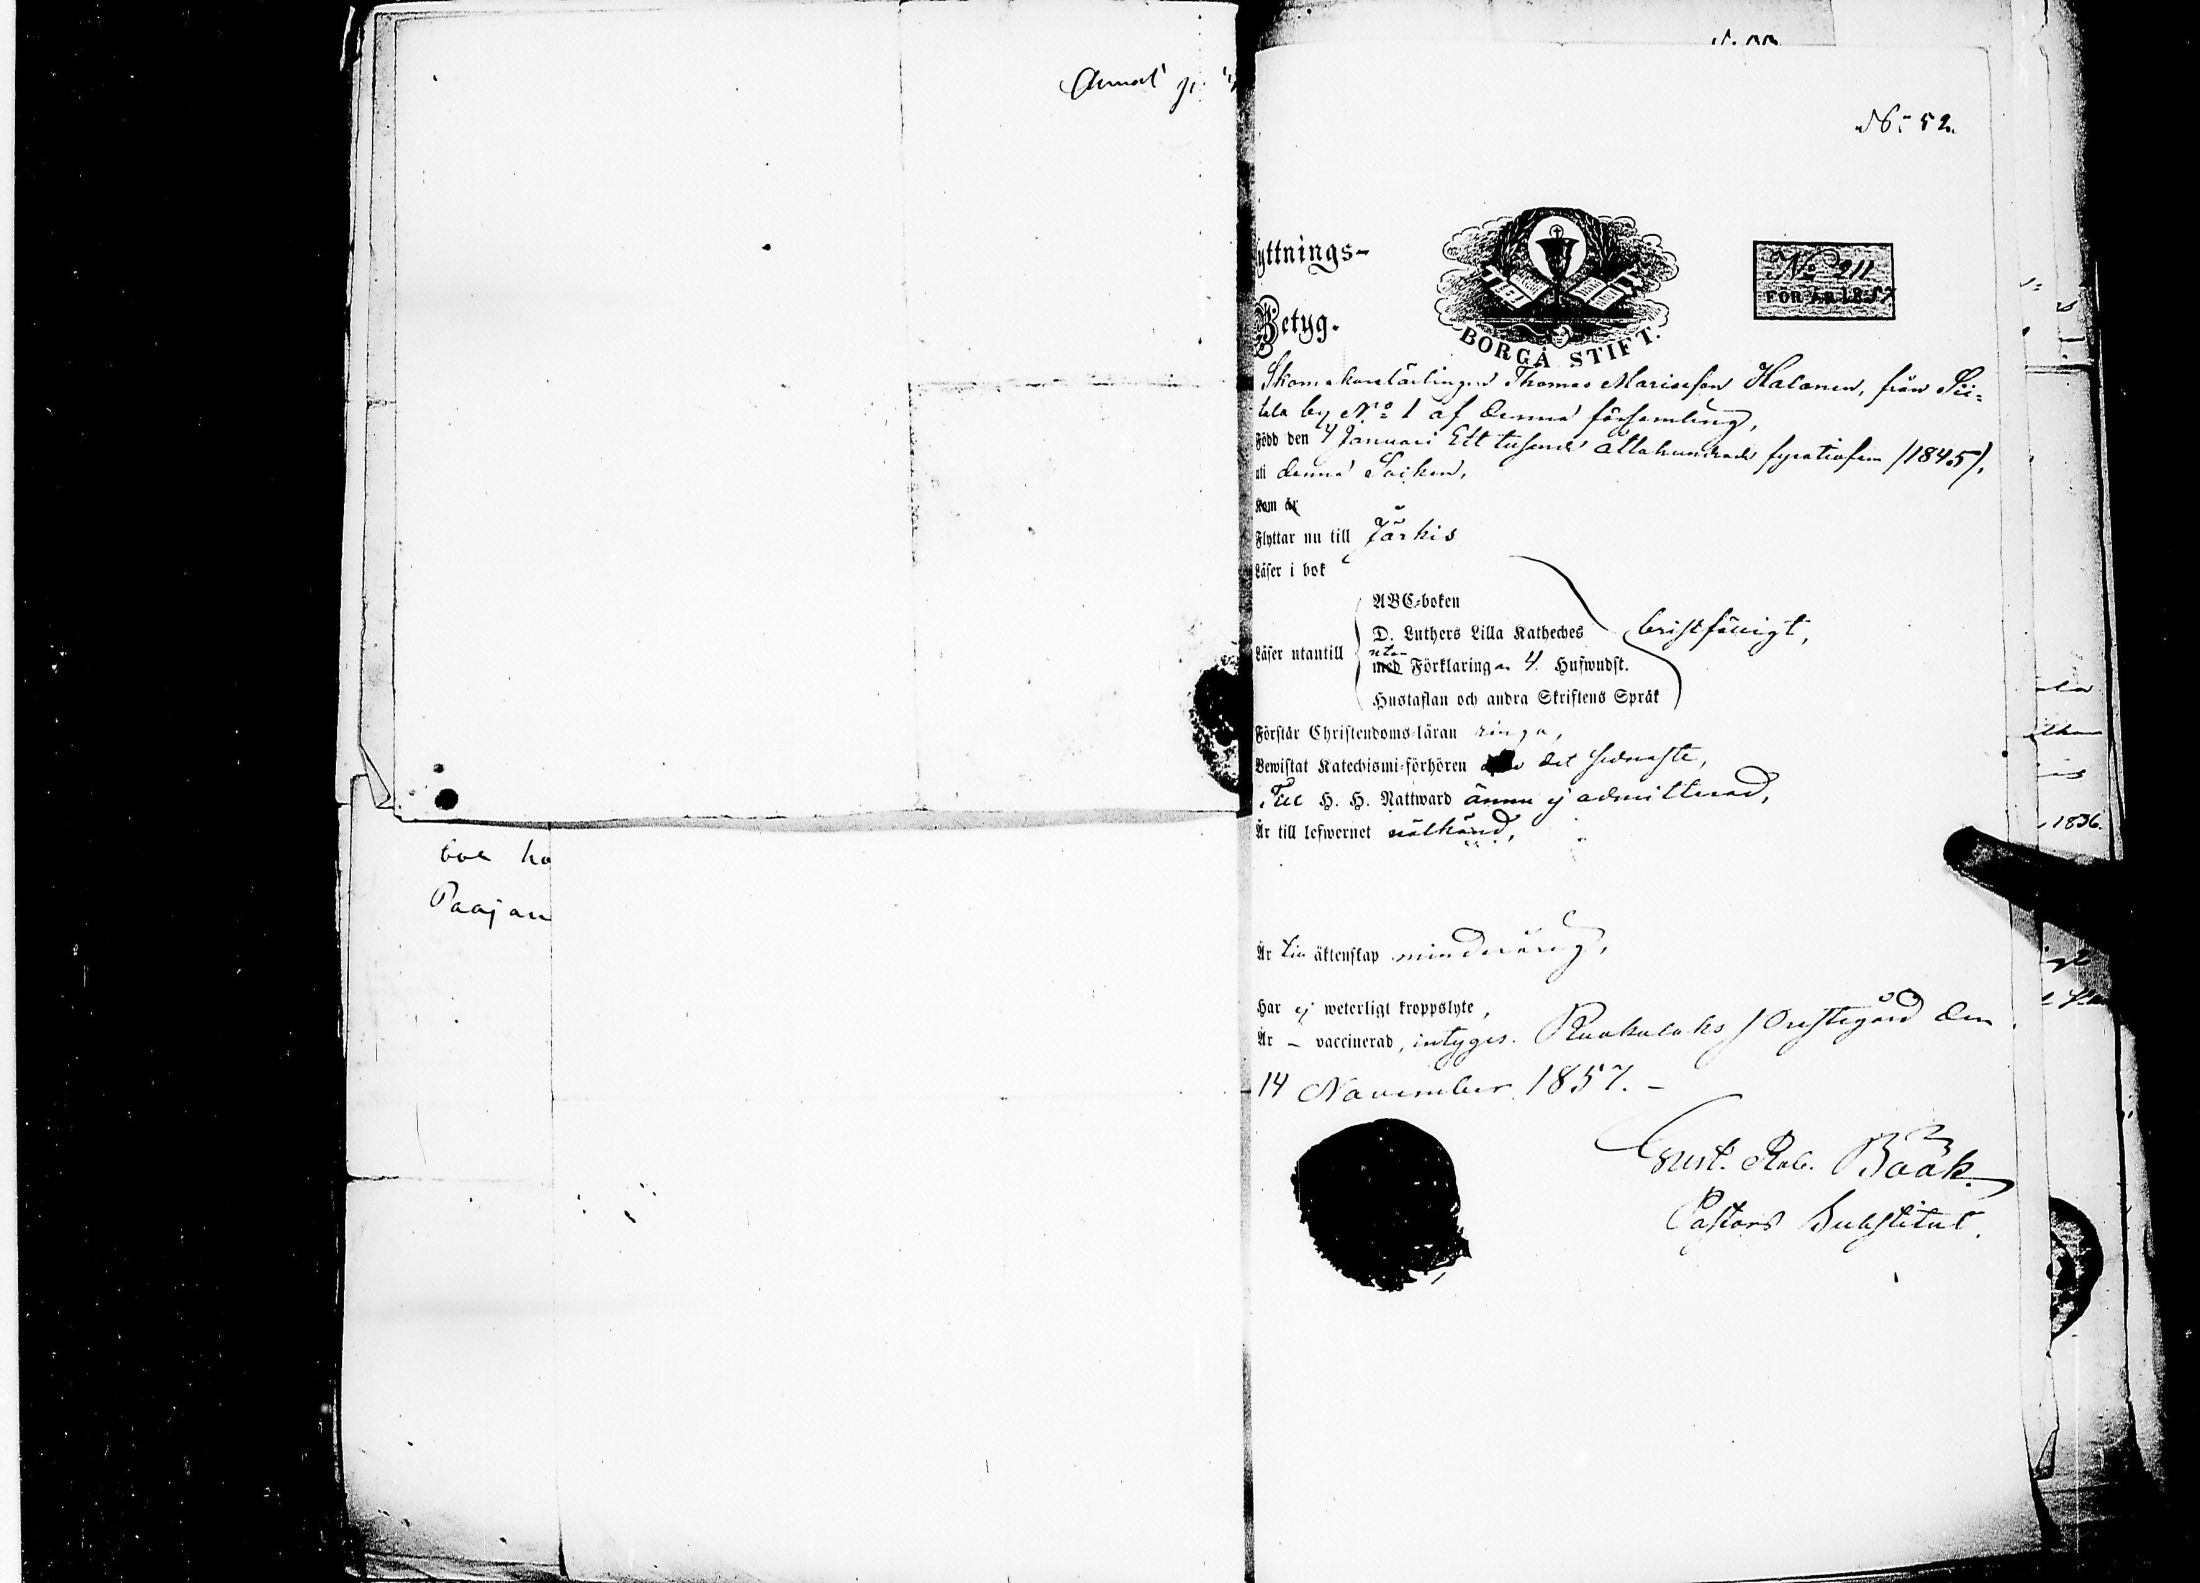 No 52.
yttnings-
Betyg.
BORGÅ STIFT.
No 211
FÖR ÅR 1857
Skomakarelärlingen Thomas Mariaeson Halonen, från Sii-
tala by No 1 af denna församling,
Född den 4 Januari Ett tusend åttahundrade fyratiofem (1845),
uti denna Socken,
Kom år
Flyttar nu till Jäskis
Läser i bok
ABC-boken
D. Luthers Lilla Katheches
bristfälligt,
Läser utantill
utan
med Förklaringar 4. Hufwudst.
Hustaflan och andra Skriftens Språk
Förstår Christendoms-läran ringa,
Bewistat Katechismi-förhören det sednaste,
Till H. H. Nattward ännu ej admitterad,
Är till lefwernet välkänd,
Är till äktenskap minderårig,
Har ej weterligt kroppslyte,
Är – vaccinerad, intygas. Ruokolaks Prestegård den
14 November 1857. –
Gust. Rob. Bååk
Pastors Substitut.
boe ha
Paajan
1836.